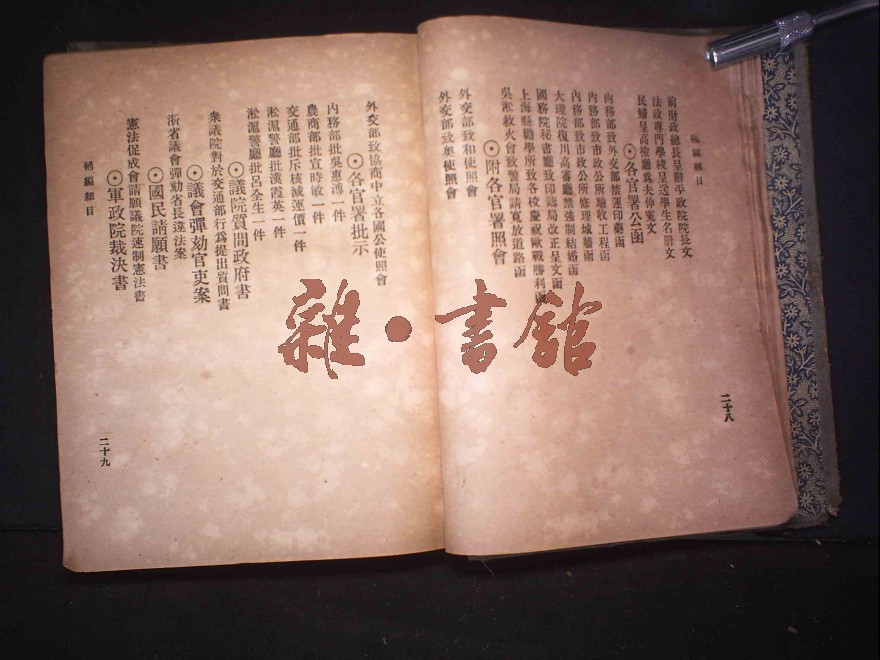 補編細目
前財政總長呈辭平政院院長文
法政專門學校呈送學生名册文
民婦呈高檢廳爲夫伸寃文
⊙各官署公函
內務部致外交部禁運印藥函
內務部致市政公所驗收工程函
內務部致市政公所修理城牆函
大理院復川高審廳禁強制結婚函
國務院秘書廳致印鑄局改正呈文函
上海縣勸學所致各校慶祝歐戰勝利函
吳淞救火會致警局請寬放道路函
⊙附各官署照會
外交部致和使照會
外交部致奧使照會
二十八
外交部致協商中立各國公使照會
⊙各官署批示
內務部批吳惠溥一件
農商部批宣時敏一件
交通部批斥核減運價一件
淞滬警廳批漢霞英一件
淞滬警廳批呂全生一件
⊙議院質問政府書
衆議院對於交通部行爲提出質問書
⊙議會彈劾官吏案
浙省議會彈劾省長違法案
⊙國民請願書
憲法促成會請願議院速制憲法書
⊙軍政院裁決書
補編細目
二十九
雜·書館